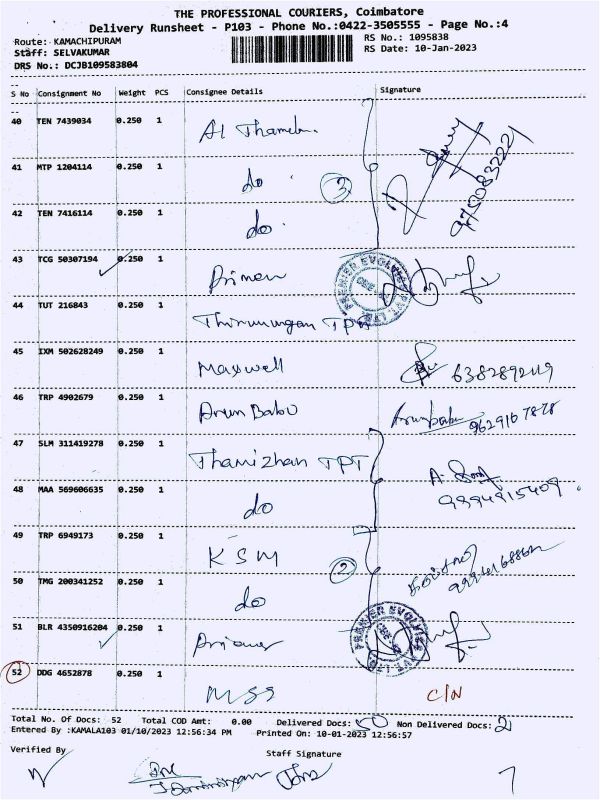 THE PROFESSIONAL COURIERS, Coimbatore
Delivery Runsheet - P103 - Phone No.:0422-3505555 - Page No.:4
Route: KAMACHIPURAM RS No.: 1095838
Staff: SELVAKUMAR RS Date: 10-Jan-2023
DRS No.: DCJB109583804
S No Consignment No Weight PCS Consignee Details Signature
40 TEN 7439034 0.250 1 Al
41 MTP 1204114 0.250 1 do 3 9750083221
42 TEN 7416114 0.250 1 do
43 TCG 50307194 0.250 1
PREMIER EVOLVICS PVT. LTD.
44 TUT 216843 0.250 1 Thirumurugan TPT
45 IXM 502628249 0.250 1 Maxwell
46 TRP 4902679 0.250 1 Arun Babu Arunbabu 9629167878
47 SLM 311419278 0.250 1 Thamizhan TPT
48 MAA 569606635 0.250 1 do 9994915409
49 TRP 6949173 0.250 1 KSM
50 TMG 200341252 0.250 1 do 2
51 BLR 4350916204 0.250 1
PREMIER EVOLVICS PVT. LTD.
52 DDG 4652878 0.250 1 MSS C/N
Total No. Of Docs: 52 Total COD Amt: 0.00 Delivered Docs: 50 Non Delivered Docs: 2
Entered By :KAMALA103 01/10/2023 12:56:34 PM Printed On: 10-01-2023 12:56:57
Verified By Staff Signature